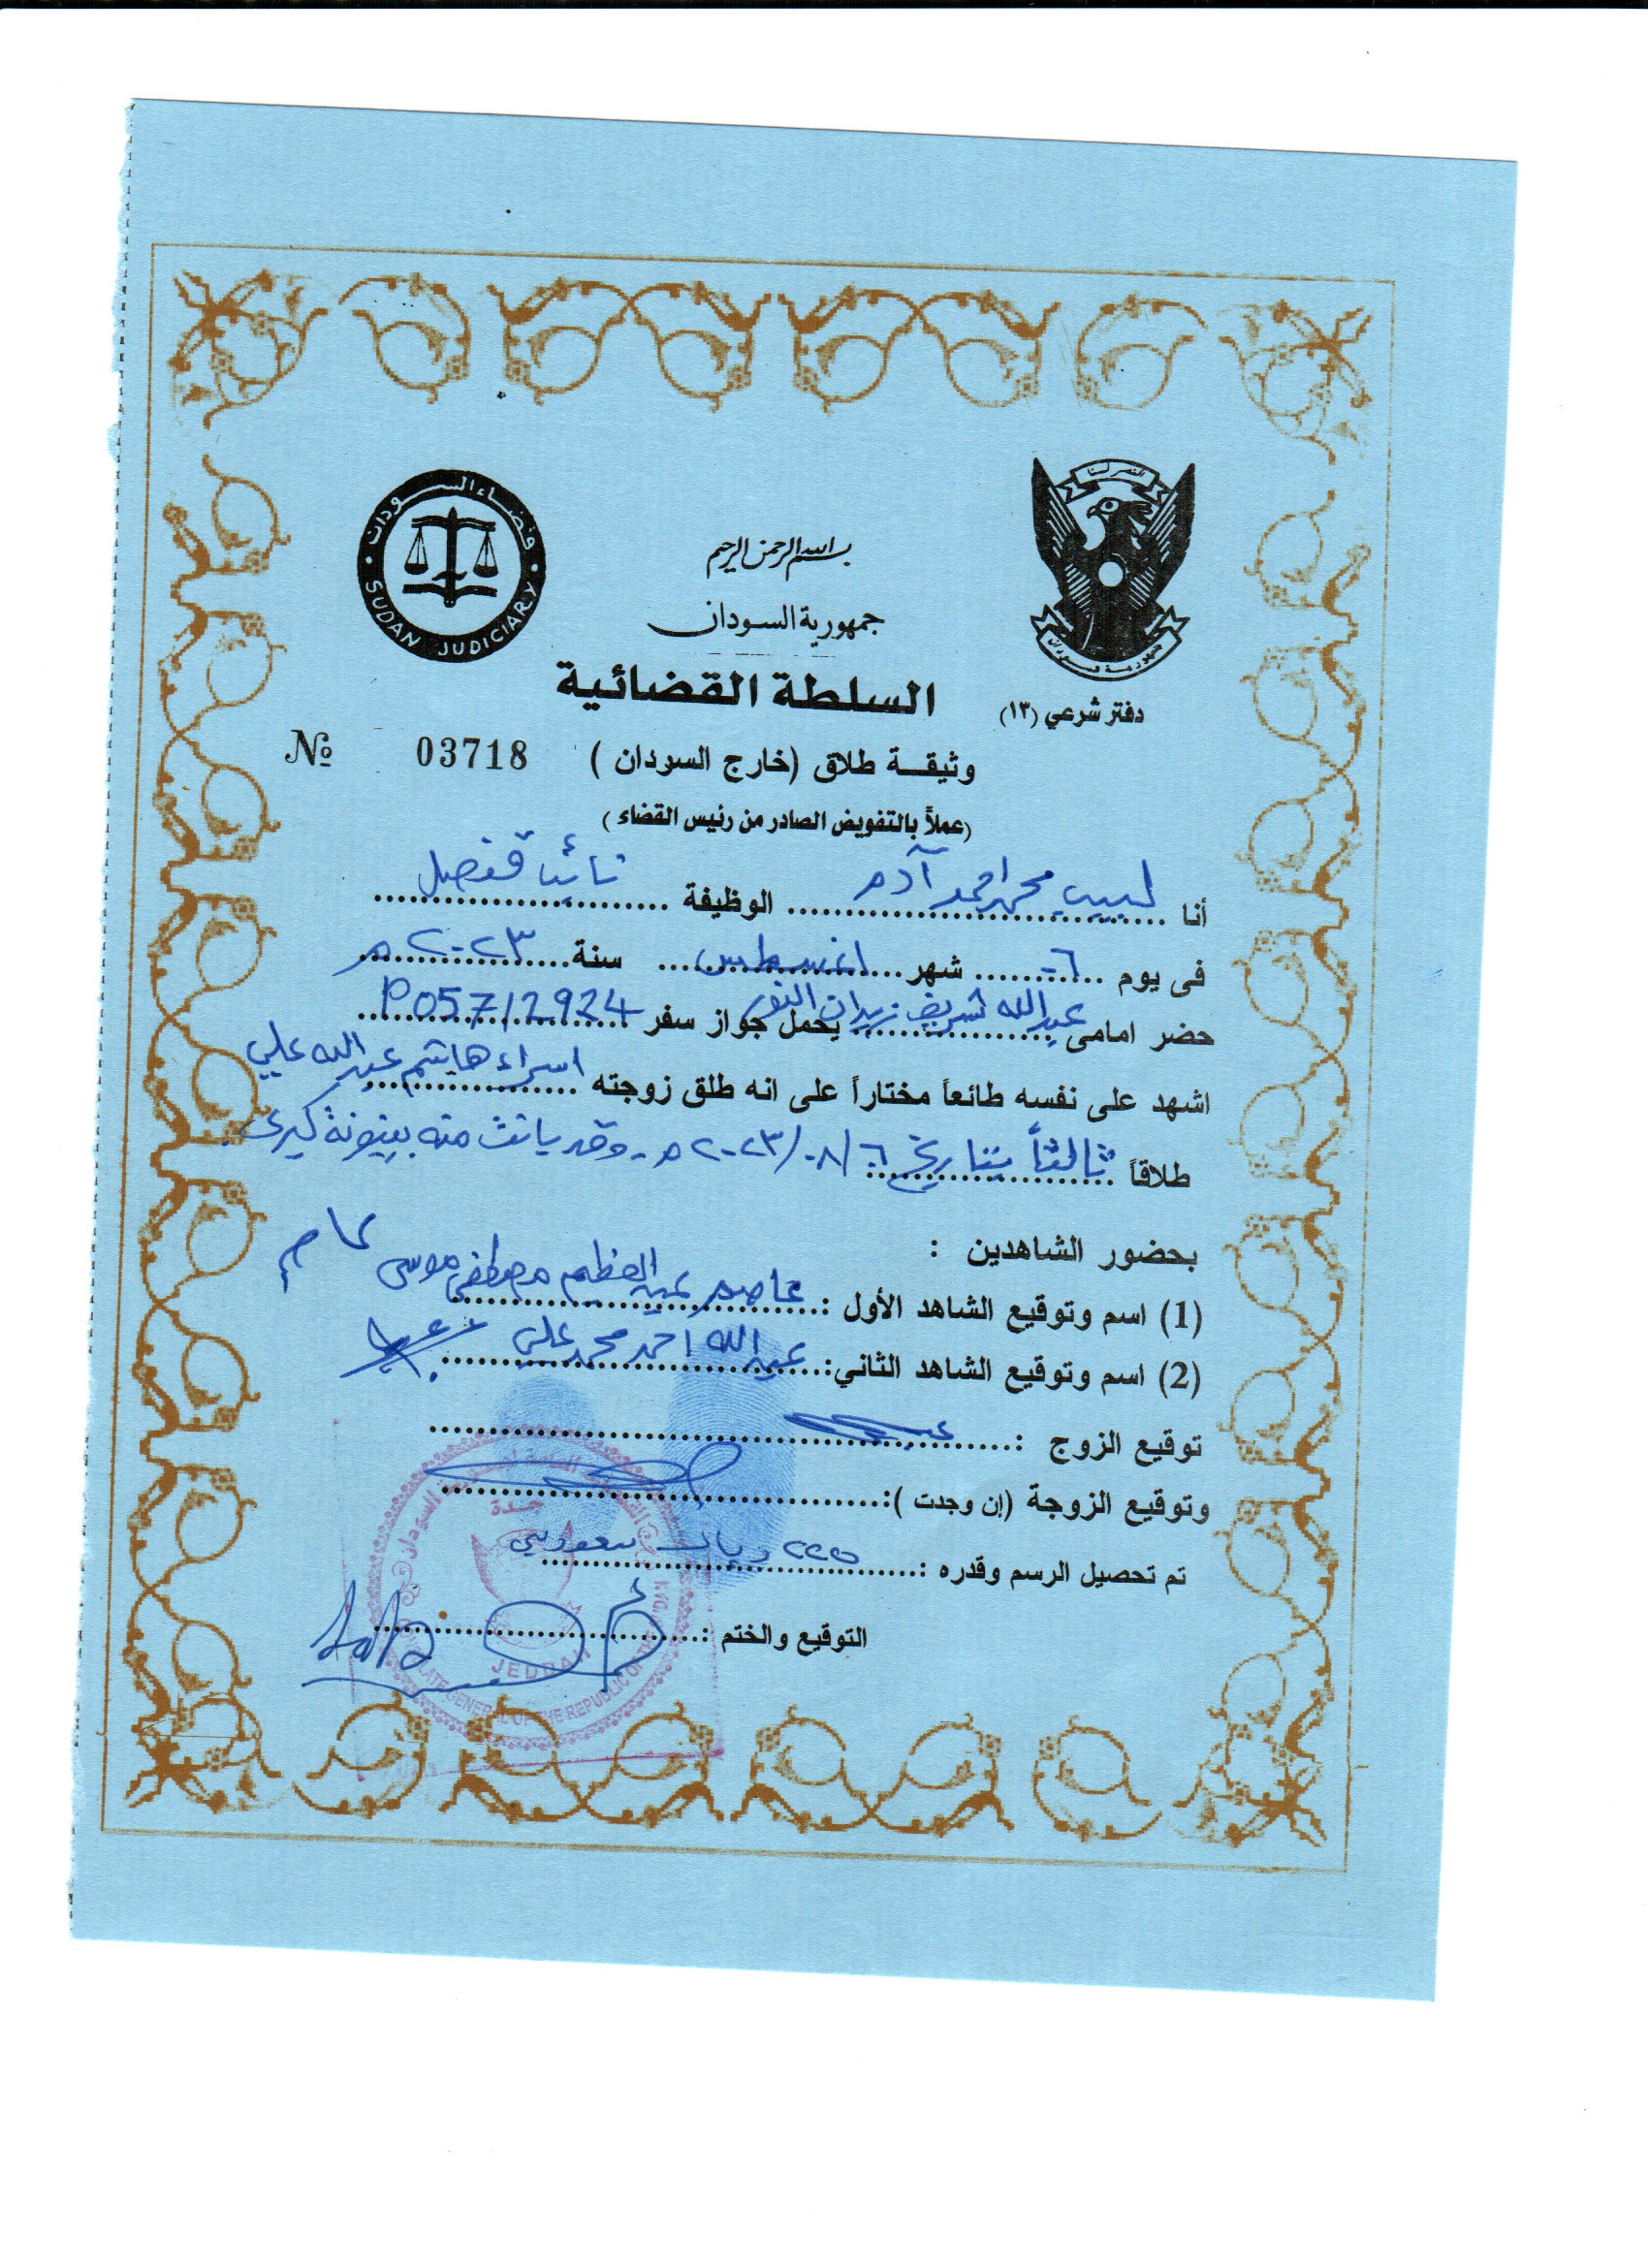 النصر لنا
جمهورية السودان
قضاء السودان
SUDAN JUDICIARY
بسم الله الرحمن الرحيم
جمهورية السودان
السلطة القضائية
دفتر شرعي (١٣)
وثيقة طلاق (خارج السودان )
№ 03718
(عملاً بالتفويض الصادر من رئيس القضاء )
أنا لبيب محمد احمد آدم الوظيفة نائب قنصل
فى يوم ٦- شهر اغسطس سنة ٢٠٢٣م
حضر امامى عبدالله شريف زيدان النور يحمل جواز سفر P05712924
اشهد على نفسه طائعاً مختاراً على انه طلق زوجته اسراء هاشم عبدالله علي
طلاقاً ثالثاً بتاريخ ٦/٠٨/٢٠٢٣م. وقد بانت منه بينونة كبرى.
بحضور الشاهدين :
(1) اسم وتوقيع الشاهد الأول : عاصم عبدالعظيم مصطفى موسى
(2) اسم وتوقيع الشاهد الثاني: عبدالله احمد محمد علي
توقيع الزوج :
وتوقيع الزوجة (إن وجدت ):
تم تحصيل الرسم وقدره : ريال سعودي
التوقيع والختم :
جدة
JEDDAH
CONSULATE GENERAL OF THE REPUBLIC OF